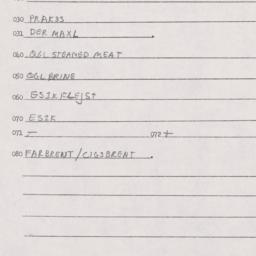 030 PRAKOS
031 DER MAXL
040 OGL STEAMED MEAT
050 OGL BRINE
060 ESIK FLEJST
070 ESIK
071 — 072 +
080 FARBRENT/CIGSBRENT